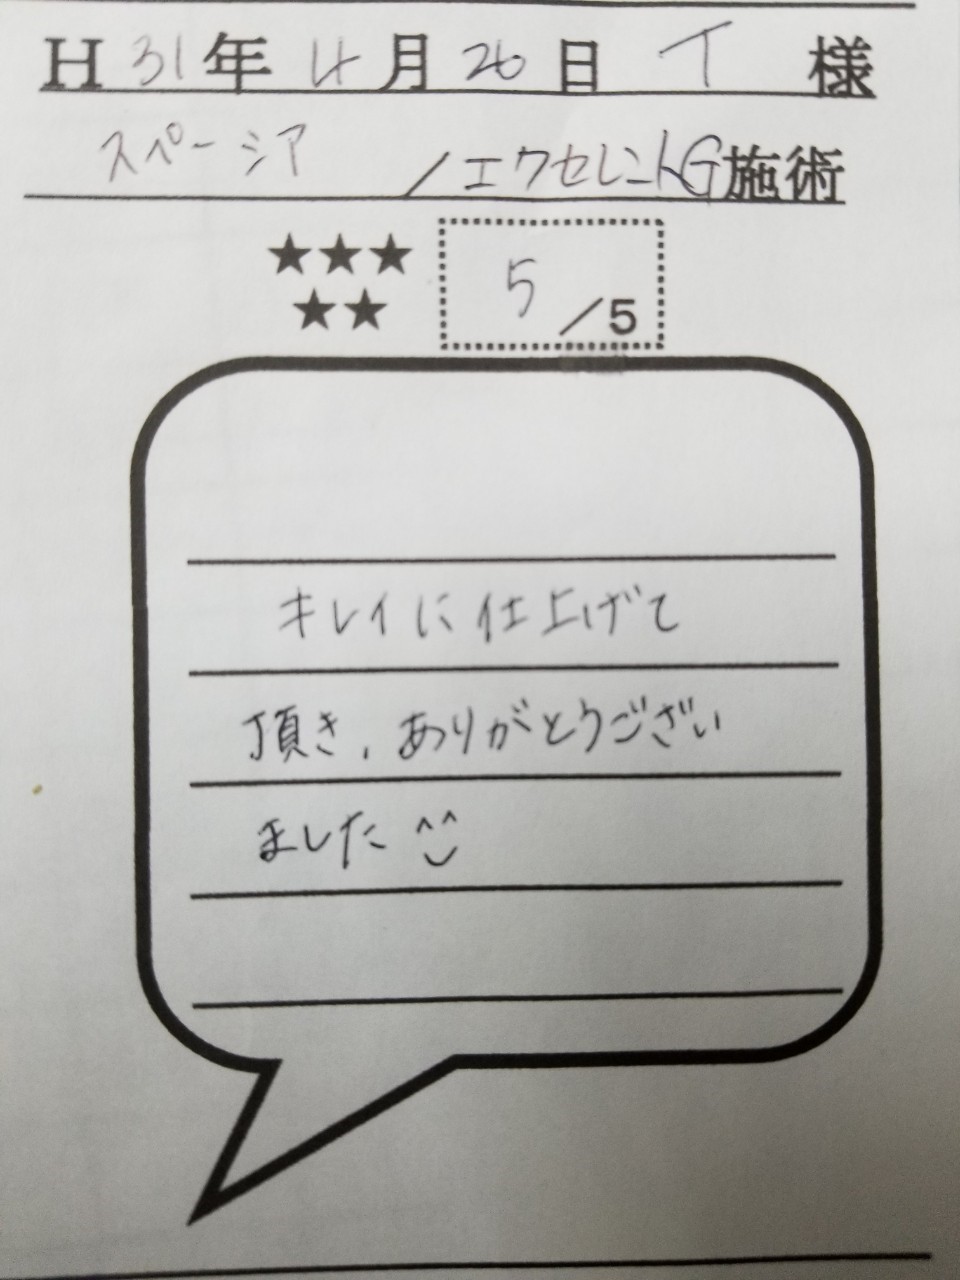 H 31年 4月 26日 T 様
スペーシア /エクセレントG施術
★★★
★★
5 /5
キレイに仕上げて
頂き、ありがとうござい
ました ^^